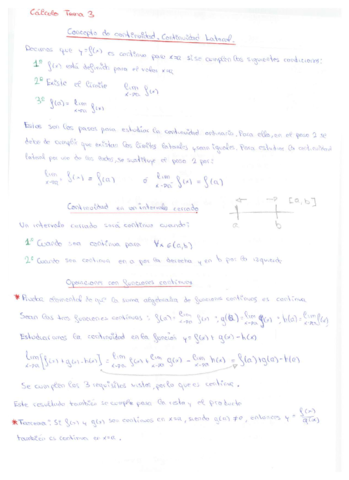 Cálculo Tema 3
Concepto de continuidad, Continuidad Lateral.
Decimos que y=f(x) es continua para x=a si se cumplen las siguientes condiciones:
1º f(x) está definida para el valor x=a
2º Existe el límite lim x→a f(x)
3º f(a) = lim x→a f(x)
Estos son los pasos para estudiar la continuidad . Para ello, en el paso 2 se
debe de cumplir que existan los límites laterales y sean iguales. Para estudiar la continuidad
lateral por uno de sus lados, se sustituye el paso 2 por:
lim f(x) = f(a) ó lim f(x) = f(a)
Continuidad en un intervalo cerrado
[a,b]
a b
Un intervalo cerrado será continuo cuando:
1º Cuando sea continua para ∀x∈(a,b)
2º Cuando sea continua en a por la derecha y en b por la izquierda
Operaciones con funciones continuas
* Prueba que la suma algebraica de funciones continuas es continua
Sean las tres funciones continuas: f(a) = lim x→a f(x) ; g(a) = lim x→a g(x) ; h(a) = lim x→a h(x)
Estudiaremos la continuidad en la función y = f(x) + g(x) - h(x)
lim x→a [f(x)+g(x)-h(x)] = lim x→a f(x) + lim x→a g(x) - lim x→a h(x) = f(a)+g(a)-h(a)
Se cumplen los 3 requisitos vistos, por lo que es continua.
Este resultado también se cumple para la resta y el producto
* Teorema: Si f(x) y g(x) son continuas en x=a, siendo g(x) ≠0, entonces y = f(x)/g(x)
también es continua en x=a.